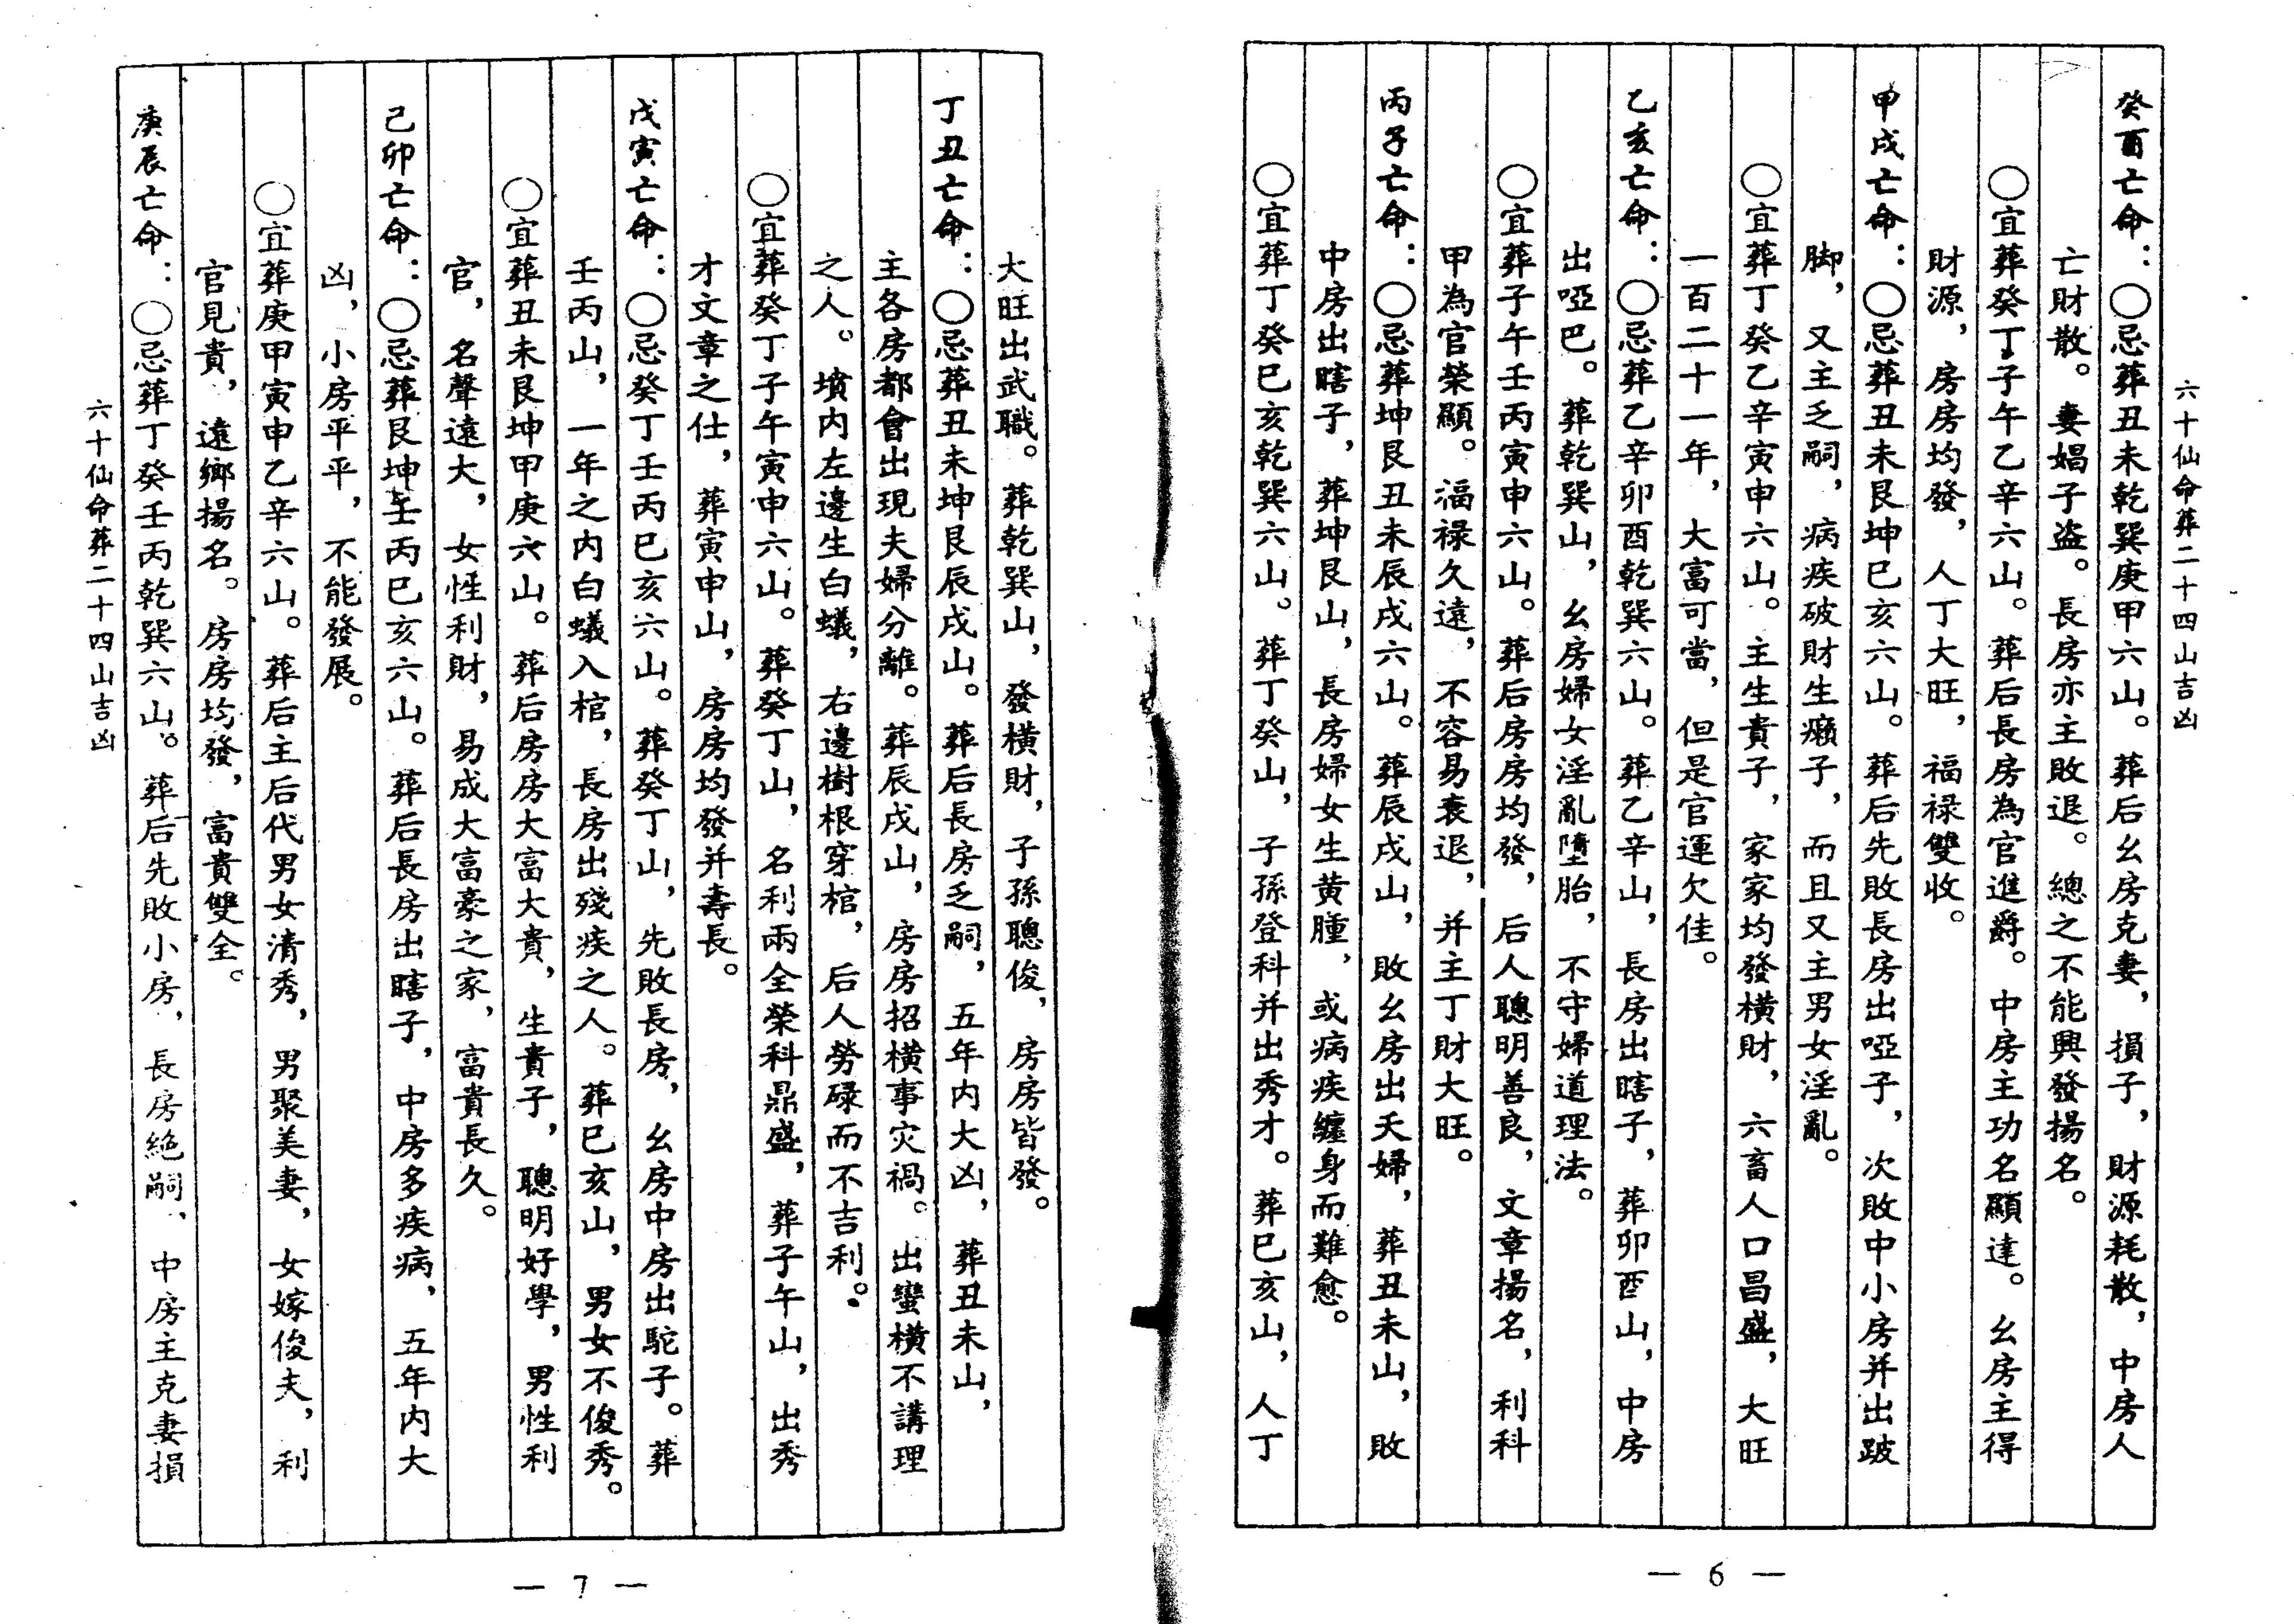 六十仙命葬二十四山吉凶
癸酉亡命：○忌葬丑未乾巽庚甲六山。葬后幺房克妻，損子，財源耗散，中房人
亡財散。妻娼子盗。長房亦主敗退。總之不能興發揚名。
○宜葬癸丁子午乙辛六山。葬后長房為官進爵。中房主功名顯達。幺房主得
財源，房房均發，人丁大旺，福禄雙收。
甲戌亡命：○忌葬丑未艮坤巳亥六山。葬后先敗長房出啞子，次敗中小房并出跛
脚，又主乏嗣，病疾破財生癩子，而且又主男女淫亂。
○宜葬丁癸乙辛寅申六山。主生貴子，家家均發橫財，六畜人口昌盛，大旺
一百二十一年，大富可當，但是官運欠佳。
乙亥亡命：○忌葬乙辛卯酉乾巽六山。葬乙辛山，長房出瞎子，葬卯酉山，中房
出啞巴。葬乾巽山，幺房婦女淫亂墮胎，不守婦道理法。
○宜葬子午壬丙寅申六山。葬后房房均發，后人聰明善良，文章揚名，利科
甲為官榮顯。福禄久遠，不容易衰退，并主丁財大旺。
丙子亡命：○忌葬坤艮丑未辰戌六山。葬辰戌山，敗幺房出夭婦，葬丑未山，敗
中房出瞎子，葬坤艮山，長房婦女生黄腫，或病疾纏身而難愈。
○宜葬丁癸巳亥乾巽六山。葬丁癸山，子孫登科并出秀才。葬巳亥山，人丁
— 6 —
大旺出武職。葬乾巽山，發橫財，子孫聰俊，房房皆發。
丁丑亡命：○忌葬丑未坤艮辰戌山。葬后長房乏嗣，五年内大凶，葬丑未山，
主各房都會出現夫婦分離。葬辰戌山，房房招橫事灾禍。出蠻橫不講理
之人。墳内左邊生白蟻，右邊樹根穿棺，后人勞碌而不吉利。
○宜葬癸丁子午寅申六山。葬癸丁山，名利兩全榮科鼎盛，葬子午山，出秀
才文章之仕，葬寅申山，房房均發并壽長。
戊寅亡命：○忌癸丁壬丙巳亥六山。葬癸丁山，先敗長房，幺房中房出駝子。葬
壬丙山，一年之内白蟻入棺，長房出殘疾之人。葬巳亥山，男女不俊秀。
○宜葬丑未艮坤甲庚六山。葬后房房大富大貴，生貴子，聰明好學，男性利
官，名聲遠大，女性利財，易成大富豪之家，富貴長久。
己卯亡命：○忌葬艮坤壬丙巳亥六山。葬后長房出瞎子，中房多疾病，五年内大
凶，小房平平，不能發展。
○宜葬庚甲寅申乙辛六山。葬后主后代男女清秀，男聚美妻，女嫁俊夫，利
官見貴，遠鄉揚名。房房均發，富貴雙全。
庚辰亡命：○忌葬丁癸壬丙乾巽六山。葬后先敗小房，長房絶嗣，中房主克妻損
六十仙命葬二十四山吉凶
— 7 —